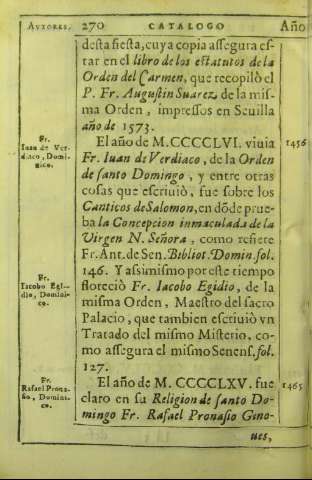 AVTORES. 270 CATALOGO Año
desta fiesta, cuya copia assegura es-
tar en el libro de los estatutos de la
Orden del Carmen, que recopilò el
P. Fr. Augustin Suarez, de la mis-
ma Orden, impressos en Seuilla
año de 1573.
El año de M. CCCCLVI. viuia
Fr. Iuan de Verdiaco, de la Orden
de santo Domingo, y entre otras
cosas que escriuiò, fue sobre los
Canticos de Salomon, en dõde prue-
ba la Concepcion inmaculada de la
Virgen N. Señora, como refiere
Fr. Ant. de Sen. Bibliot. Domin. fol.
146. Y assimismo por este tiempo
floreciò Fr. Iacobo Egidio, de la
misma Orden, Maestro del sacro
Palacio, que tambien escriuiò vn
Tratado del mismo Misterio, co-
mo assegura el mismo Senens. fol.
127.
El año de M. CCCCLXV. fue
claro en su Religion de santo Do-
mingo Fr. Rafael Pronasio Geno-
ues,
Fr.
Iuan de Ver-
diaco, Domi-
nico.
1456
Fr.
Iacobo Egi-
dio, Domini-
co.
Fr.
Rafael Prona-
sio, Domini-
co.
1465